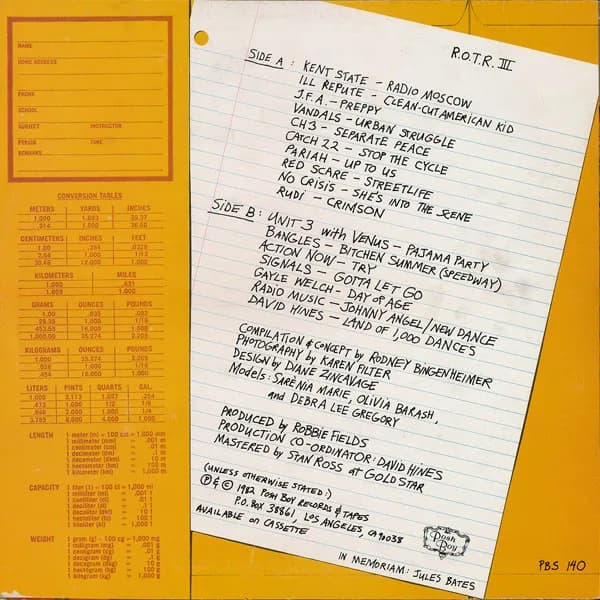 R.O.T.R. III
SIDE A : KENT STATE – RADIO MOSCOW
ILL REPUTE – CLEAN-CUT AMERICAN KID
J.F.A. – PREPPY
VANDALS – URBAN STRUGGLE
CH3 – SEPARATE PEACE
CATCH 22 – STOP THE CYCLE
PARIAH – UP TO US
RED SCARE – STREETLIFE
NO CRISIS – SHE'S INTO THE SCENE
RUDI – CRIMSON
SIDE B : UNIT 3 with VENUS – PAJAMA PARTY
BANGLES – BITCHEN SUMMER (SPEEDWAY)
ACTION NOW – TRY
SIGNALS – GOTTA LET GO
GAYLE WELCH – DAY of AGE
RADIO MUSIC – JOHNNY ANGEL/NEW DANCE
DAVID HINES – LAND OF 1,000 DANCES
COMPILATION & CONCEPT by RODNEY BINGENHEIMER
PHOTOGRAPHY by KAREN FILTER
DESIGN by DIANE ZINCAVAGE
Models: SARENIA MARIE, OLIVIA BARASH,
and DEBRA LEE GREGORY
PRODUCED by ROBBIE FIELDS
PRODUCTION CO-ORDINATOR: DAVID HINES
MASTERED by STAN ROSS at GOLD STAR
(UNLESS OTHERWISE STATED:)
℗ & © 1982 POSH BOY RECORDS & TAPES
P.O. BOX 38861, LOS ANGELES, CA 90038
AVAILABLE on CASSETTE
Posh Boy
IN MEMORIAM: JULES BATES
PBS 140
NAME
HOME ADDRESS
PHONE
SCHOOL
SUBJECT INSTRUCTOR
PERIOD TIME
REMARKS
CONVERSION TABLES
METERS YARDS INCHES
1.000 1.093 39.37
.914 1.000 36.00
CENTIMETERS INCHES FEET
1.00 .394 .0328
2.54 1.000 1/12
30.48 12.000 1.000
KILOMETERS MILES
1.000 .621
1.609 1.000
GRAMS OUNCES POUNDS
1.00 .035 .002
28.35 1.000 1/16
453.59 16.000 1.000
1,000.00 35.274 2.205
KILOGRAMS OUNCES POUNDS
1.000 35.274 2.205
.028 1.000 1/16
.454 16.000 1.000
LITERS PINTS QUARTS GAL.
1.000 2.113 1.057 .264
.473 1.000 1/2 1/8
.946 2.000 1.000 1/4
3.785 8.000 4.000 1.000
LENGTH 1 meter (m) = 100 cm = 1,000 mm
1 millimeter (mm) = .001 m
1 centimeter (cm) = .01 m
1 decimeter (dm) = .1 m
1 decameter (dkm) = 10 m
1 hectometer (hm) = 100 m
1 kilometer (km) = 1,000 m
CAPACITY 1 liter (l) = 100 cl = 1,000 ml
1 milliliter (ml) = .001 l
1 centiliter (cl) = .01 l
1 deciliter (dl) = .1 l
1 decaliter (dkl) = 10 l
1 hectoliter (hl) = 100 l
1 kiloliter (kl) = 1,000 l
WEIGHT 1 gram (g) = 100 cg = 1,000 mg
1 milligram (mg) = .001 g
1 centigram (cg) = .01 g
1 decigram (dg) = .1 g
1 decagram (dkg) = 10 g
1 hectogram (hg) = 100 g
1 kilogram (kg) = 1,000 g